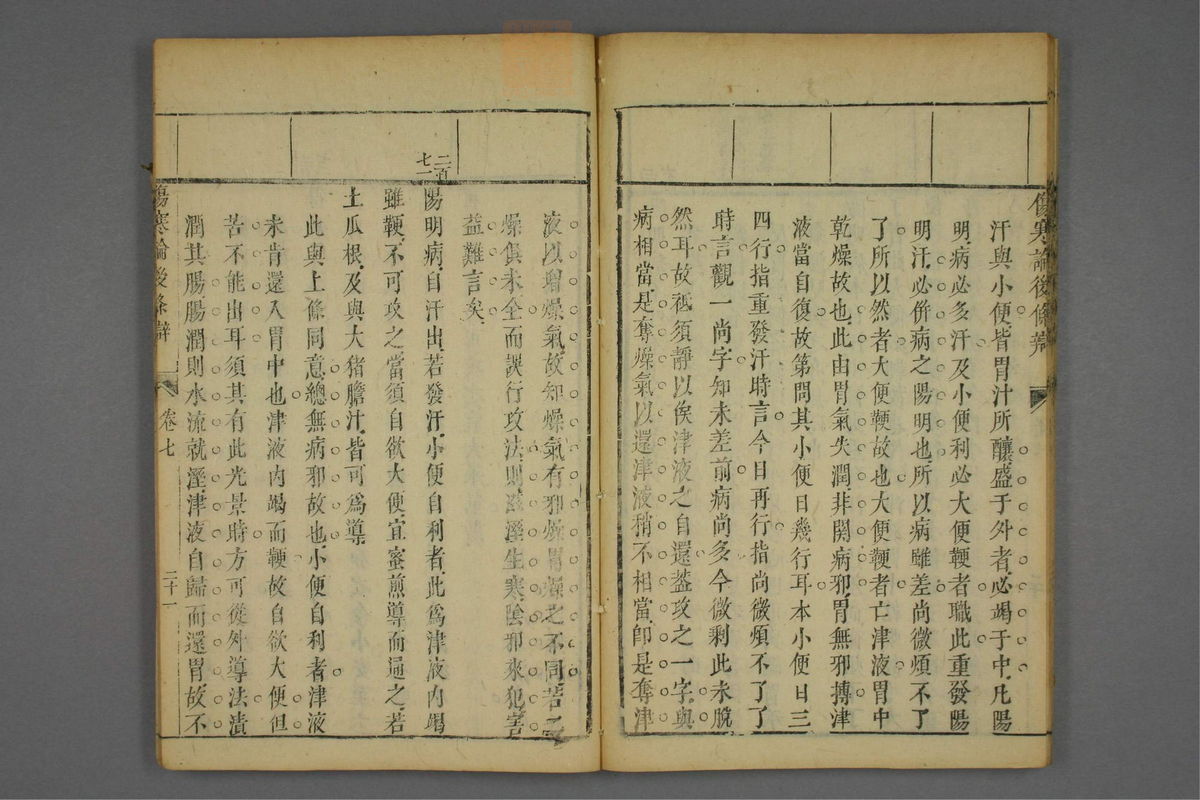 傷寒論後條辨
汗與小便皆胃汁所釀盛于外者必竭于中凡陽
明病必多汗及小便利必大便鞕者職此重發陽
明汗必併病之陽明也所以病雖差尚微煩不了
了所以然者大便鞕故也大便鞕者亡津液胃中
乾燥故也此由胃氣失潤非關病邪胃無邪摶津
液當自復故第問其小便日幾行耳本小便日三
四行指重發汗時言今日再行指尚微煩不了了
時言觀一尚字知未差前病尚多今微剩此未脫
然耳故祗須靜以俟津液之自還葢攻之一字與
病相當是奪燥氣以還津液稍不相當卽是奪津
液以增燥氣故知燥氣有邪燥胃燥之不同若
燥俱未全而誤行攻法則滋溼生寒陰邪來犯害
益難言矣
二百七一
陽明病自汗出若發汗小便自利者此爲津液內竭
雖鞕不可攻之當須自欲大便宜蜜煎導而通之若
土瓜根及與大猪膽汁皆可爲導
此與上條同意總無病邪故也小便自利者津液
未肯還入胃中也津液內竭而鞕故自欲大便但
苦不能出耳須其有此光景時方可從外導法漬
潤其腸腸潤則水流就溼津液自歸而還胃故不
傷寒論後條辨
卷七
二十一